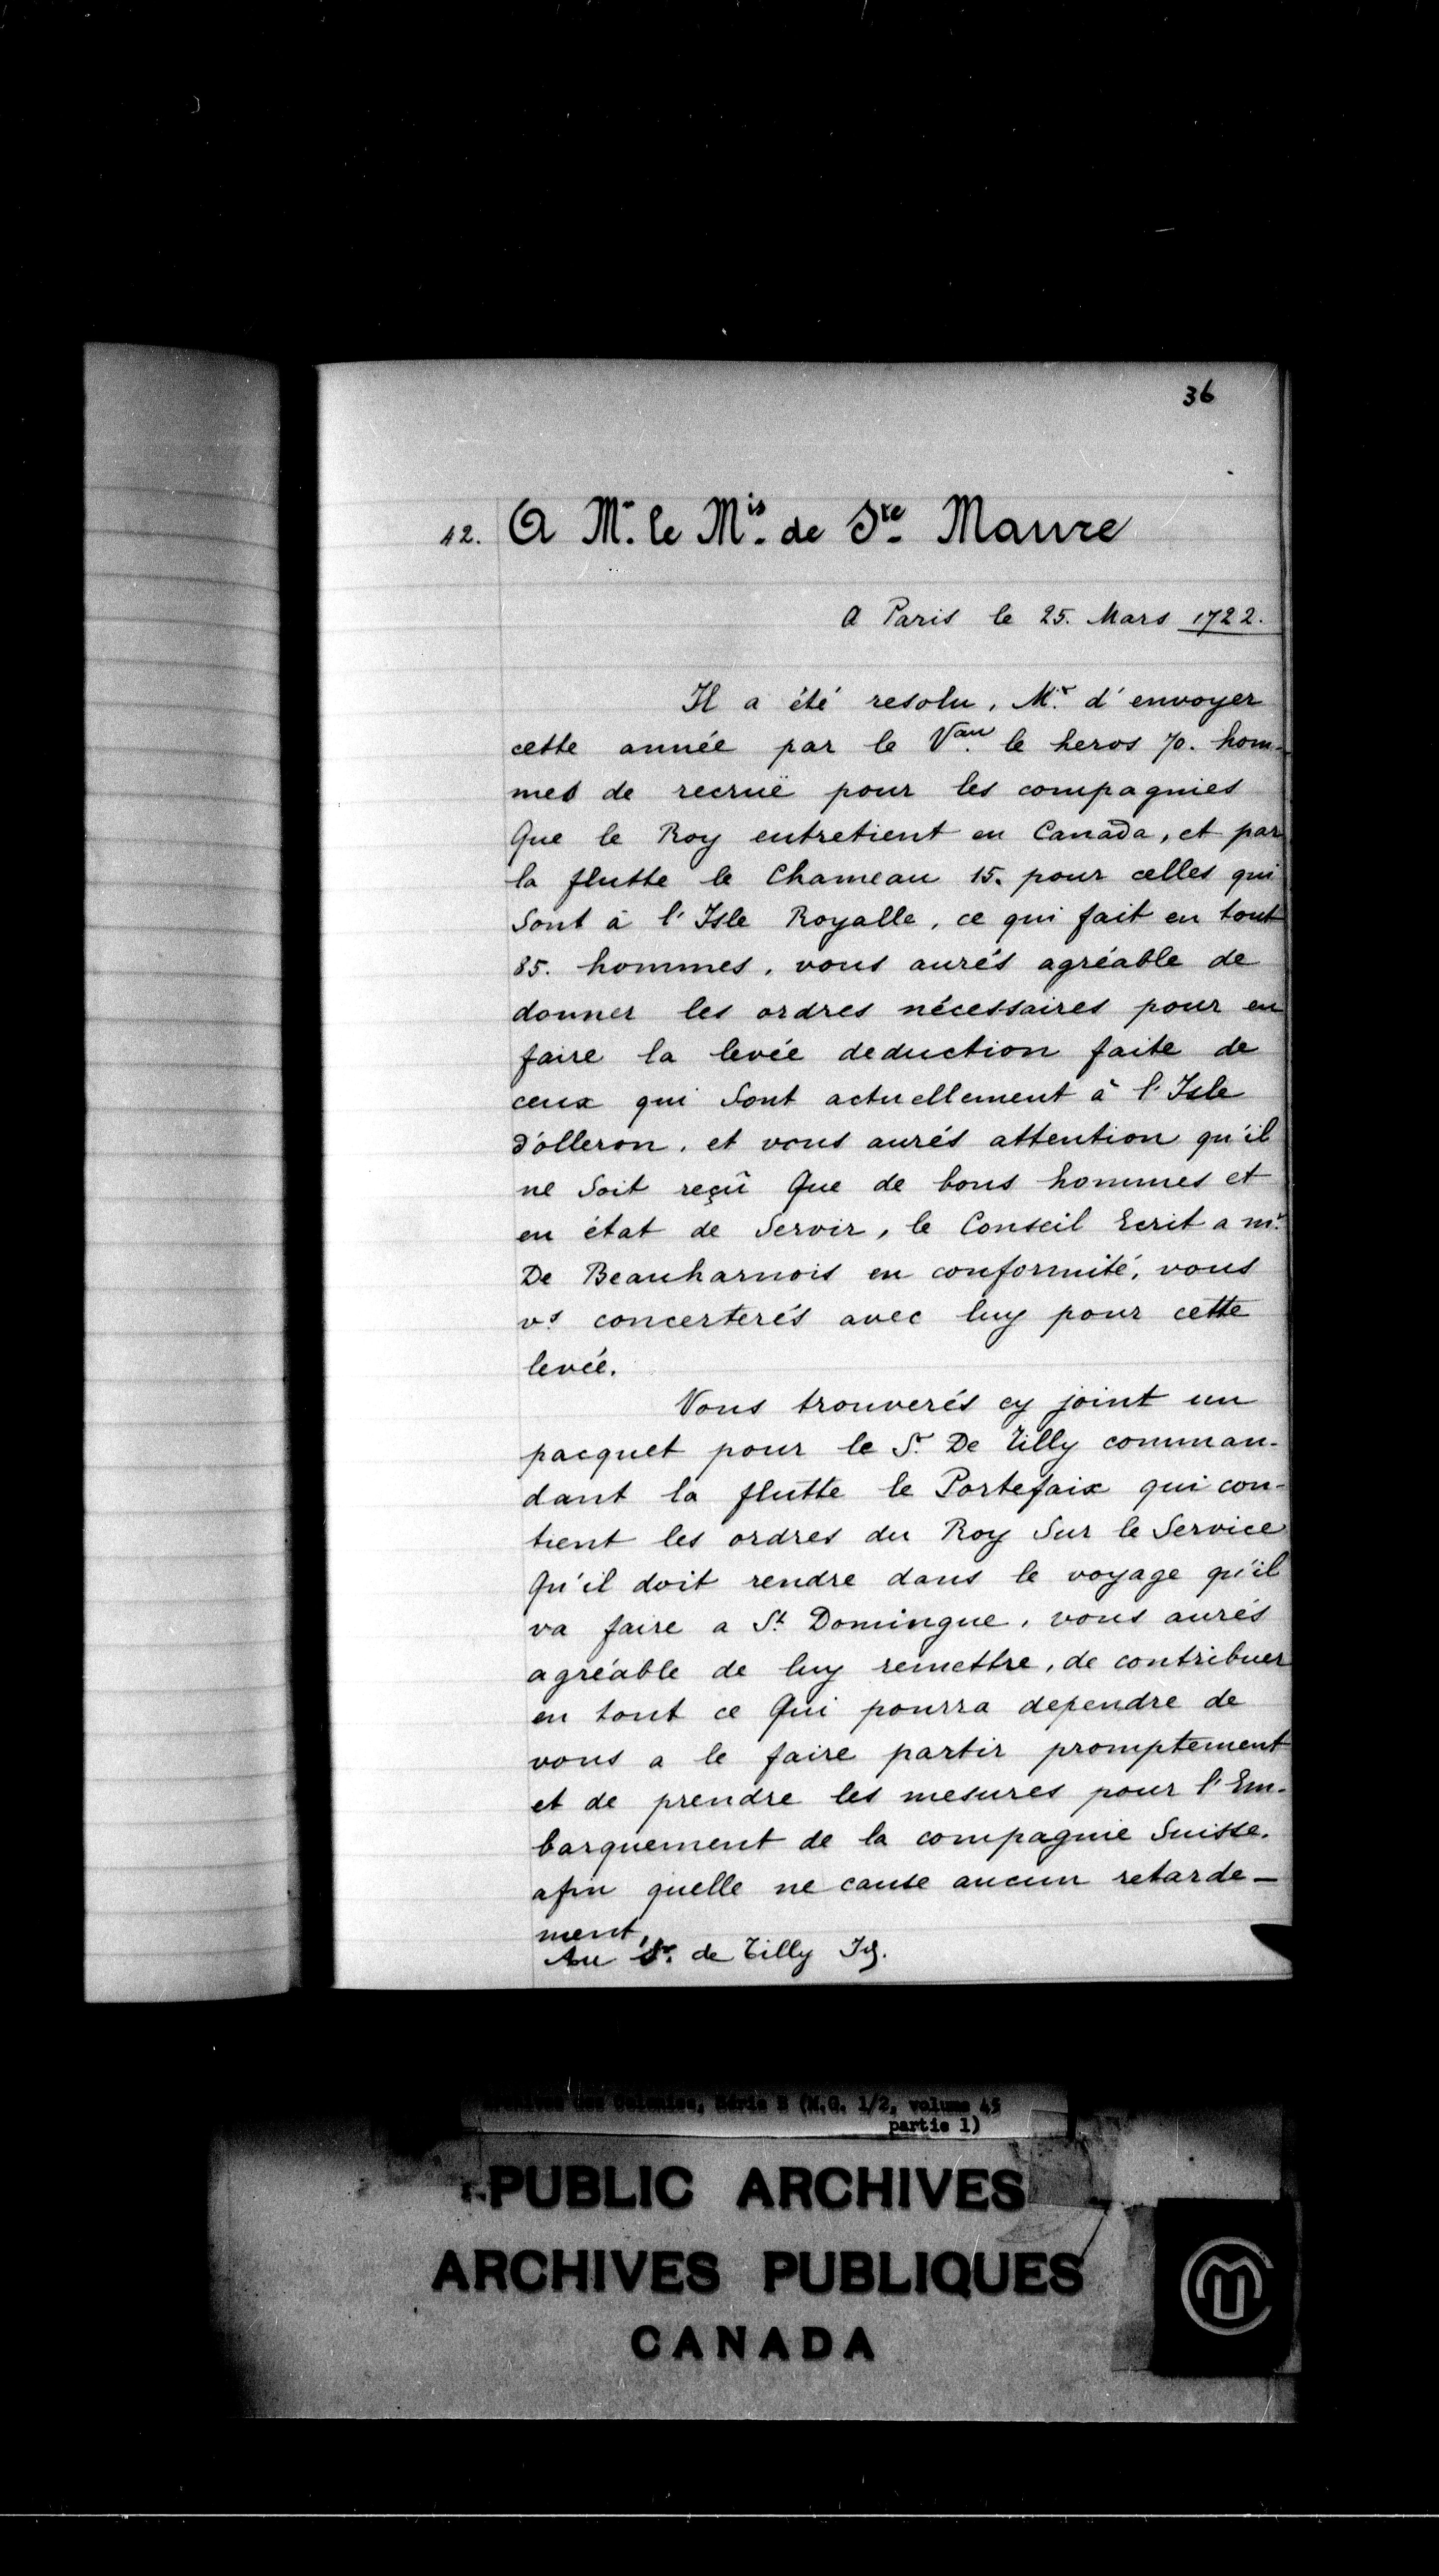 36
42. A Mr. le Mis. de Ste. Maure
A Paris le 25. Mars 1722.
Il a été resolu, Mr. d'envoyer
cette année par le Vau. le heros 70. hom-
mes de recruë pour les compagnies
Que le Roy entretient en Canada, et par
la flutte le Chameau 15. pour celles qui
Sont à l'Isle Royalle, ce qui fait en tout
85. hommes, vous aurés agréable de
donner les ordres nécessaires pour en
faire la levée deduction faite de
ceux qui Sont actuellement à l'Isle
d'olleron, et vous aurés attention qu'il
ne Soit reçû Que de bons hommes et
en état de Servir, le Conseil Ecrit a mr.
De Beauharnois en conformité, vous
vs. concerterés avec luy pour cette
levée.
Vous trouverés cy joint un
pacquet pour le Sr. De Tilly comman-
dant la flutte le Portefaix qui con-
tient les ordres du Roy Sur le Service
Qu'il doit rendre dans le voyage qu'il
va faire a St. Domingue, vous aurés
agréable de luy remettre, de contribuer
en tout ce Qui pourra dependre de
vous a le faire partir promptement
et de prendre les mesures pour l'Em-
barquement de la compagnie Suisse.
afin quelle ne cause aucun retarde-
ment,
Au Sr. de Tilly
Archives des Colonies, Série B (M.G. 1/2, volume 45
partie 1)
PUBLIC ARCHIVES
ARCHIVES PUBLIQUES
CANADA